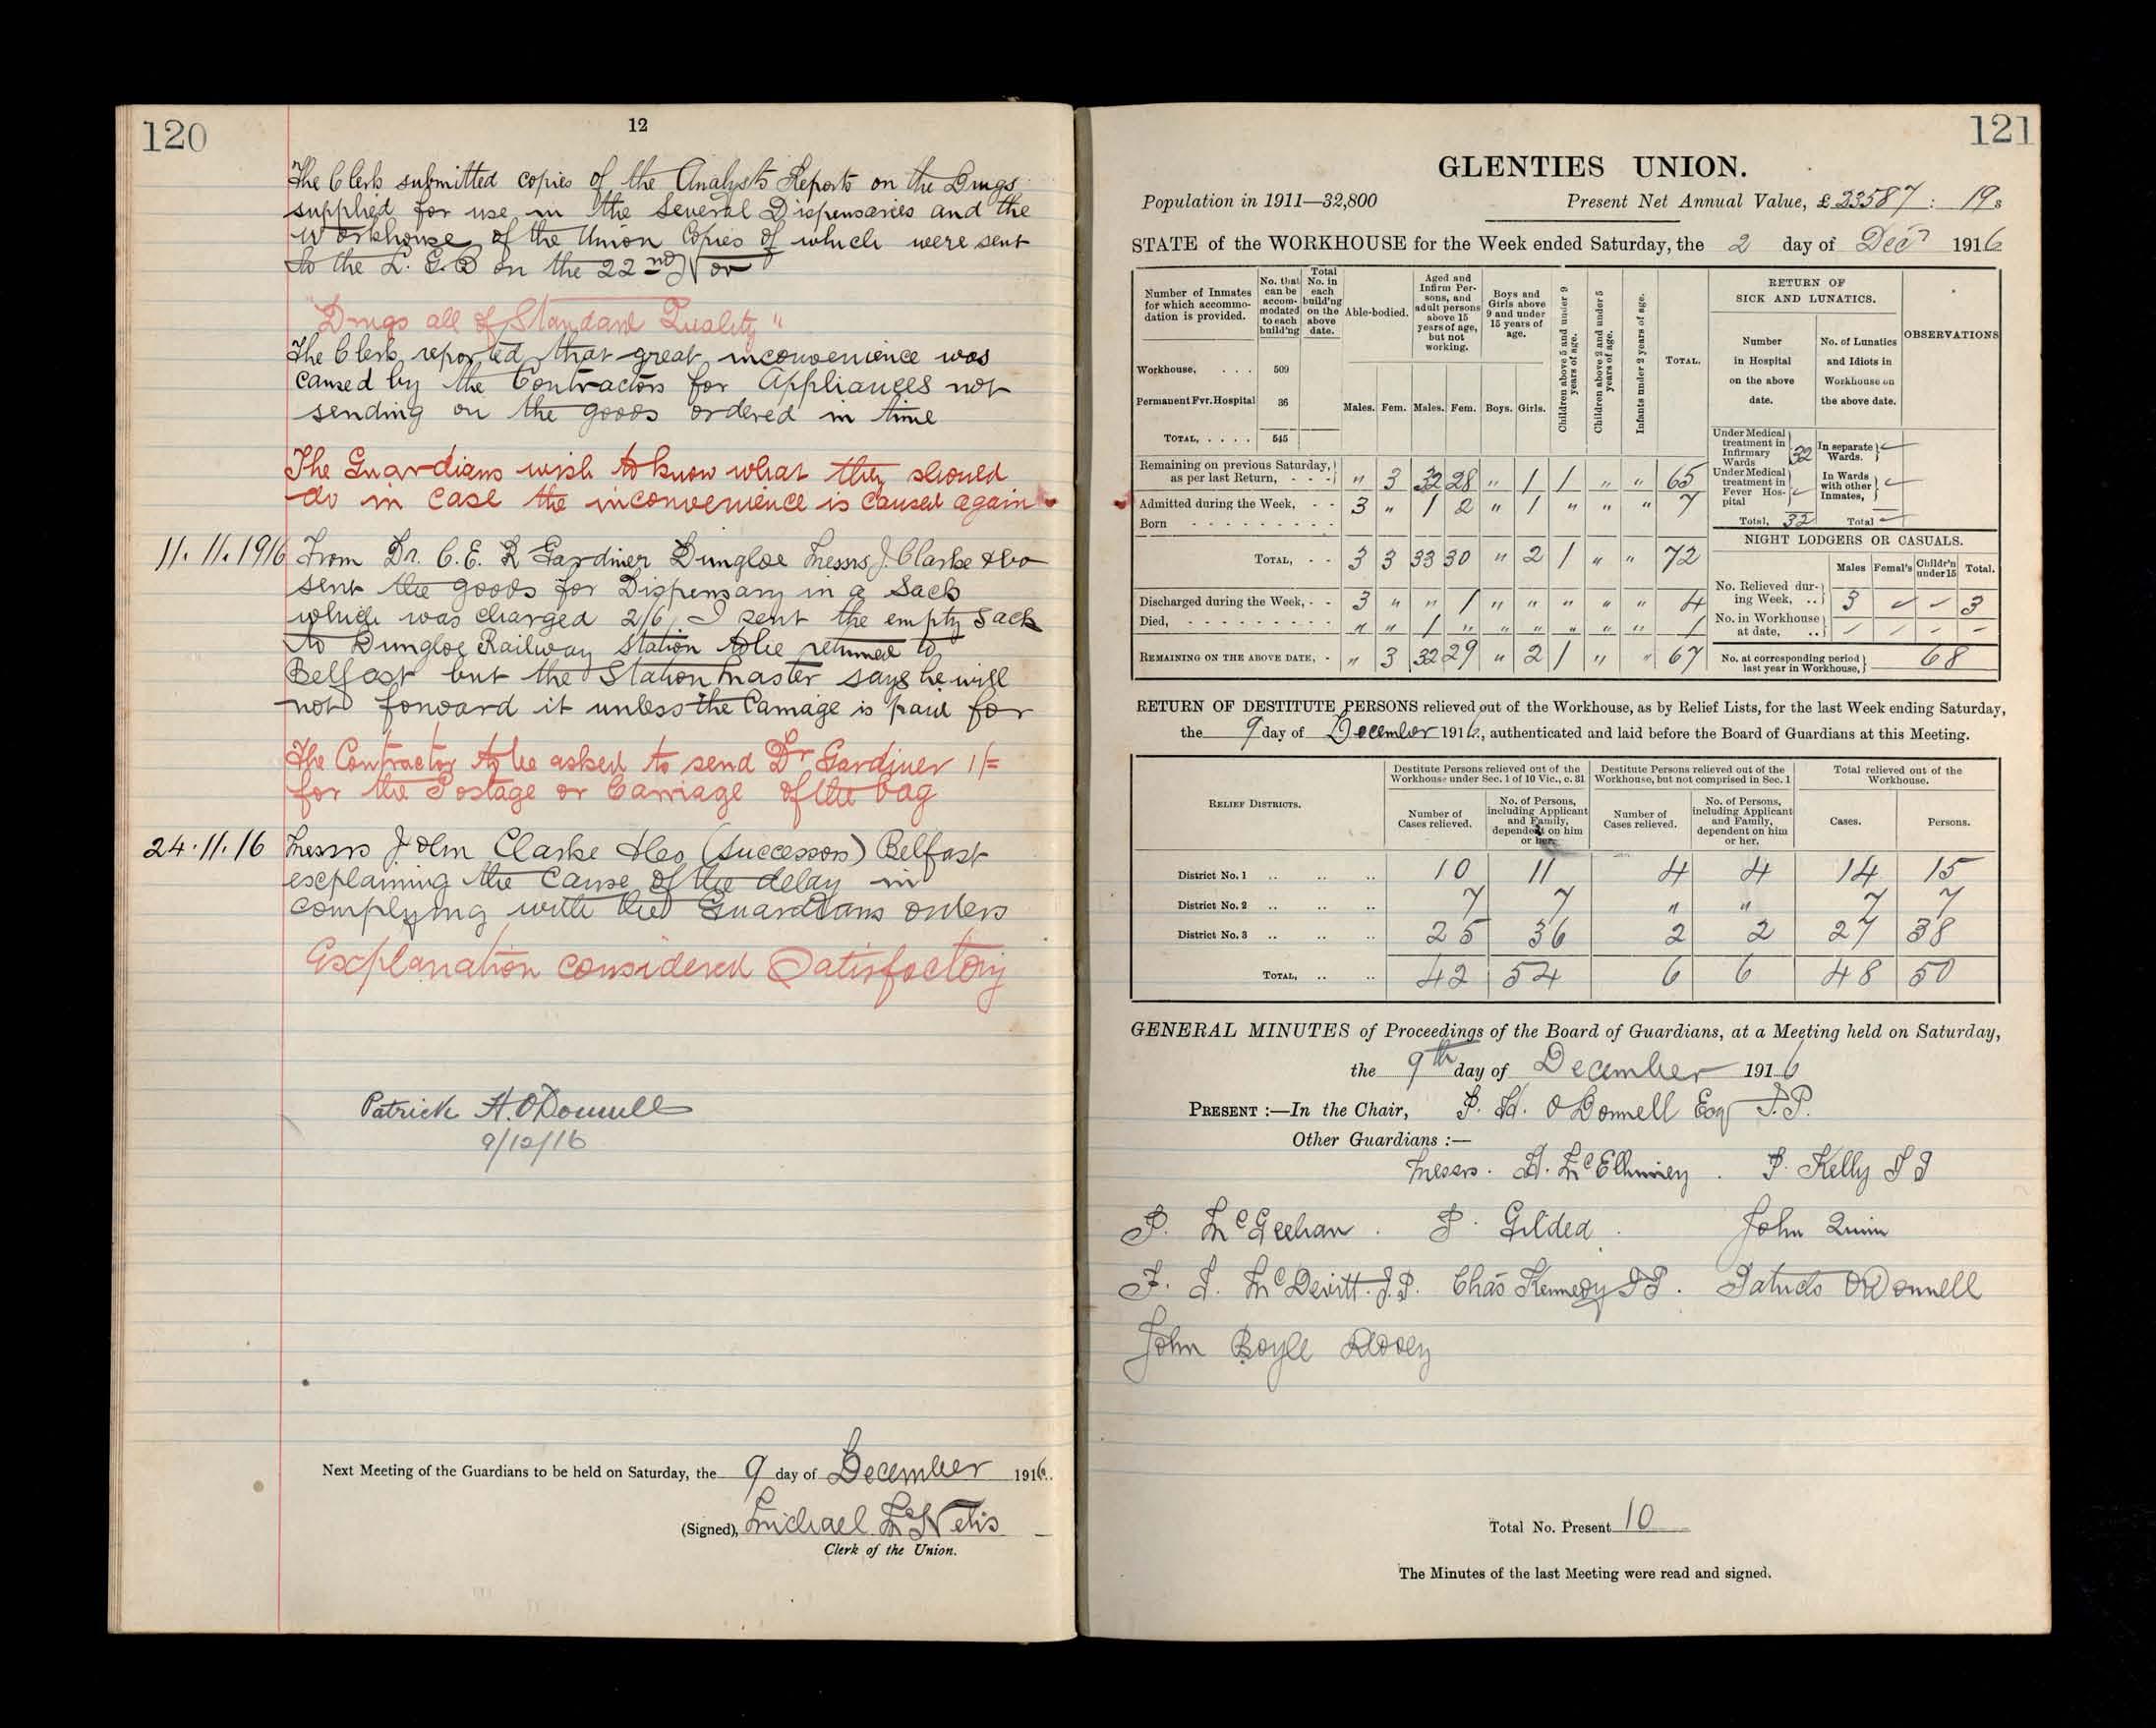 120
12
The Clerk submitted copies of the Analysts Reports on the Drugs
supplied for use in the several Dispensaries and the
Workhouse of the Union Copies of which were sent
to the L. G. B on the 22nd Nov
"Drugs all of Standard Quality"
The Clerk reported that great inconvenience was
caused by the Contractors for Appliances not
sending on the goods ordered in time
The Guardians wish to know what they should
do in case the inconvenience is caused again
11.11.1916 From Dr. C. E. R Gardiner Dungloe Messrs J. Clarke & Co
sent the goods for Dispensary in a Sack
which was charged 2/6, I sent the empty sack
to Dungloe Railway Station to be returned to
Belfast but the Station Master says he will
not forward it unless the Carriage is paid for
The Contractor to be asked to send Dr Gardiner 1/=
for the Postage or Carriage of the bag
24.11.16 Messrs John Clarke & Co (Successors) Belfast
explaining the cause of the delay in
complying with the Guardians orders
Explanation considered Satisfactory
Patrick H. O'Donnell
9/12/16
Next Meeting of the Guardians to be held on Saturday, the 9 day of December 1916.
(Signed), Michael McNelis
Clerk of the Union.
121
GLENTIES UNION.
Population in 1911—32,800 Present Net Annual Value, £23587 : 19s
STATE of the WORKHOUSE for the Week ended Saturday, the 2 day of Decr 1916
Number of Inmates for which accommodation is provided.
No. that can be accommodated to each build'ng
Total No. in each build'ng on the above date.
Able-bodied.
Aged and Infirm Persons, and adult persons above 15 years of age, but not working.
Boys and Girls above 9 and under 15 years of age.
Children above 5 and under 9 years of age.
Children above 2 and under 5 years of age.
Infants under 2 years of age.
TOTAL.
RETURN OF SICK AND LUNATICS.
Number in Hospital on the above date.
No. of Lunatics and Idiots in Workhouse on the above date.
OBSERVATIONS
Workhouse, . . . 509
Permanent Fvr. Hospital 36
TOTAL, . . . . 545
Males. Fem. Males. Fem. Boys. Girls.
Remaining on previous Saturday, as per last Return, - - - " 3 32 28 " 1 1 " " 65
Admitted during the Week, - - 3 " 1 2 " 1 " " " 7
Born - - - - - - - - -
TOTAL, - - 3 3 33 30 " 2 1 " " 72
Discharged during the Week, - - 3 " " 1 " " " " " 4
Died, - - - - - - - - - " " 1 " " " " " " 1
REMAINING ON THE ABOVE DATE, - " 3 32 29 " 2 1 " " 67
Under Medical treatment in Infirmary Wards 32
In separate Wards.
Under Medical treatment in Fever Hospital
In Wards with other Inmates,
Total, 32 Total
NIGHT LODGERS OR CASUALS.
Males Femal's Childr'n under 15 Total.
No. Relieved during Week, .. 3 3
No. in Workhouse at date, ..
No. at corresponding period last year in Workhouse, 68
RETURN OF DESTITUTE PERSONS relieved out of the Workhouse, as by Relief Lists, for the last Week ending Saturday,
the 9 day of December 1916, authenticated and laid before the Board of Guardians at this Meeting.
RELIEF DISTRICTS.
Destitute Persons relieved out of the Workhouse under Sec. 1 of 10 Vic., c. 31
Destitute Persons relieved out of the Workhouse, but not comprised in Sec. 1
Total relieved out of the Workhouse.
Number of Cases relieved.
No. of Persons, including Applicant and Family, dependent on him or her.
Number of Cases relieved.
No. of Persons, including Applicant and Family, dependent on him or her.
Cases.
Persons.
District No. 1 .. .. .. 10 11 4 4 14 15
District No. 2 .. .. .. 7 7 " " 7 7
District No. 3 .. .. .. 25 36 2 2 27 38
TOTAL, .. .. 42 54 6 6 48 50
GENERAL MINUTES of Proceedings of the Board of Guardians, at a Meeting held on Saturday,
the 9th day of December 1916
PRESENT :—In the Chair, P. H. O'Donnell Esq J.P.
Other Guardians :—
Messrs. H. McElhinney . P. Kelly JP
P. McGeehan . P. Gildea . John Quinn
F. J. McDevitt. J.P. Chas Kennedy JP . Patrick O'Donnell
John Boyle
Total No. Present 10
The Minutes of the last Meeting were read and signed.